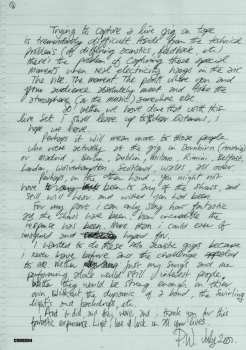 Trying to capture a live gig on tape
is tremendously difficult. Aside from the technical
problems (of differing acoustics, feedback, etc)
there's the problem of capturing those special
moments when real electricity hangs in the air.
The vibe. The moment. The point where you and
your audience absolutely meet and take the
atmosphere (and the music) somewhere else.
So whether we have done that with this
live set I shall leave up to you listeners, I
hope we have.
Perhaps it will mean more to those people
who were actually at the gig in Doncaster
or Madrid, Berlin, Dublin, Milano, Rimini, Belfast,
London, Wolverhampton, Scotland, Wales, all over.
Perhaps, on the other hand, you might not
have to been to any of the shows, and
still will hear and what you want.
For my part I can only say how fantastic
all the shows have been, how incredible the
response was been. More than I could ever of
imagined and hoped for.
I wanted to do these solo acoustic gigs because
I never have before and the challenge appealed
to me. Whether just my songs and me
performing alone would still interest people,
whether the songs would be strong enough in their
own, without the dynamic of a band, the swirling
lights and backdrops etc.
And it did and they were and I thank you for this
fantastic experience. Light, love & luck in all your lives.
P.W. July 2001.